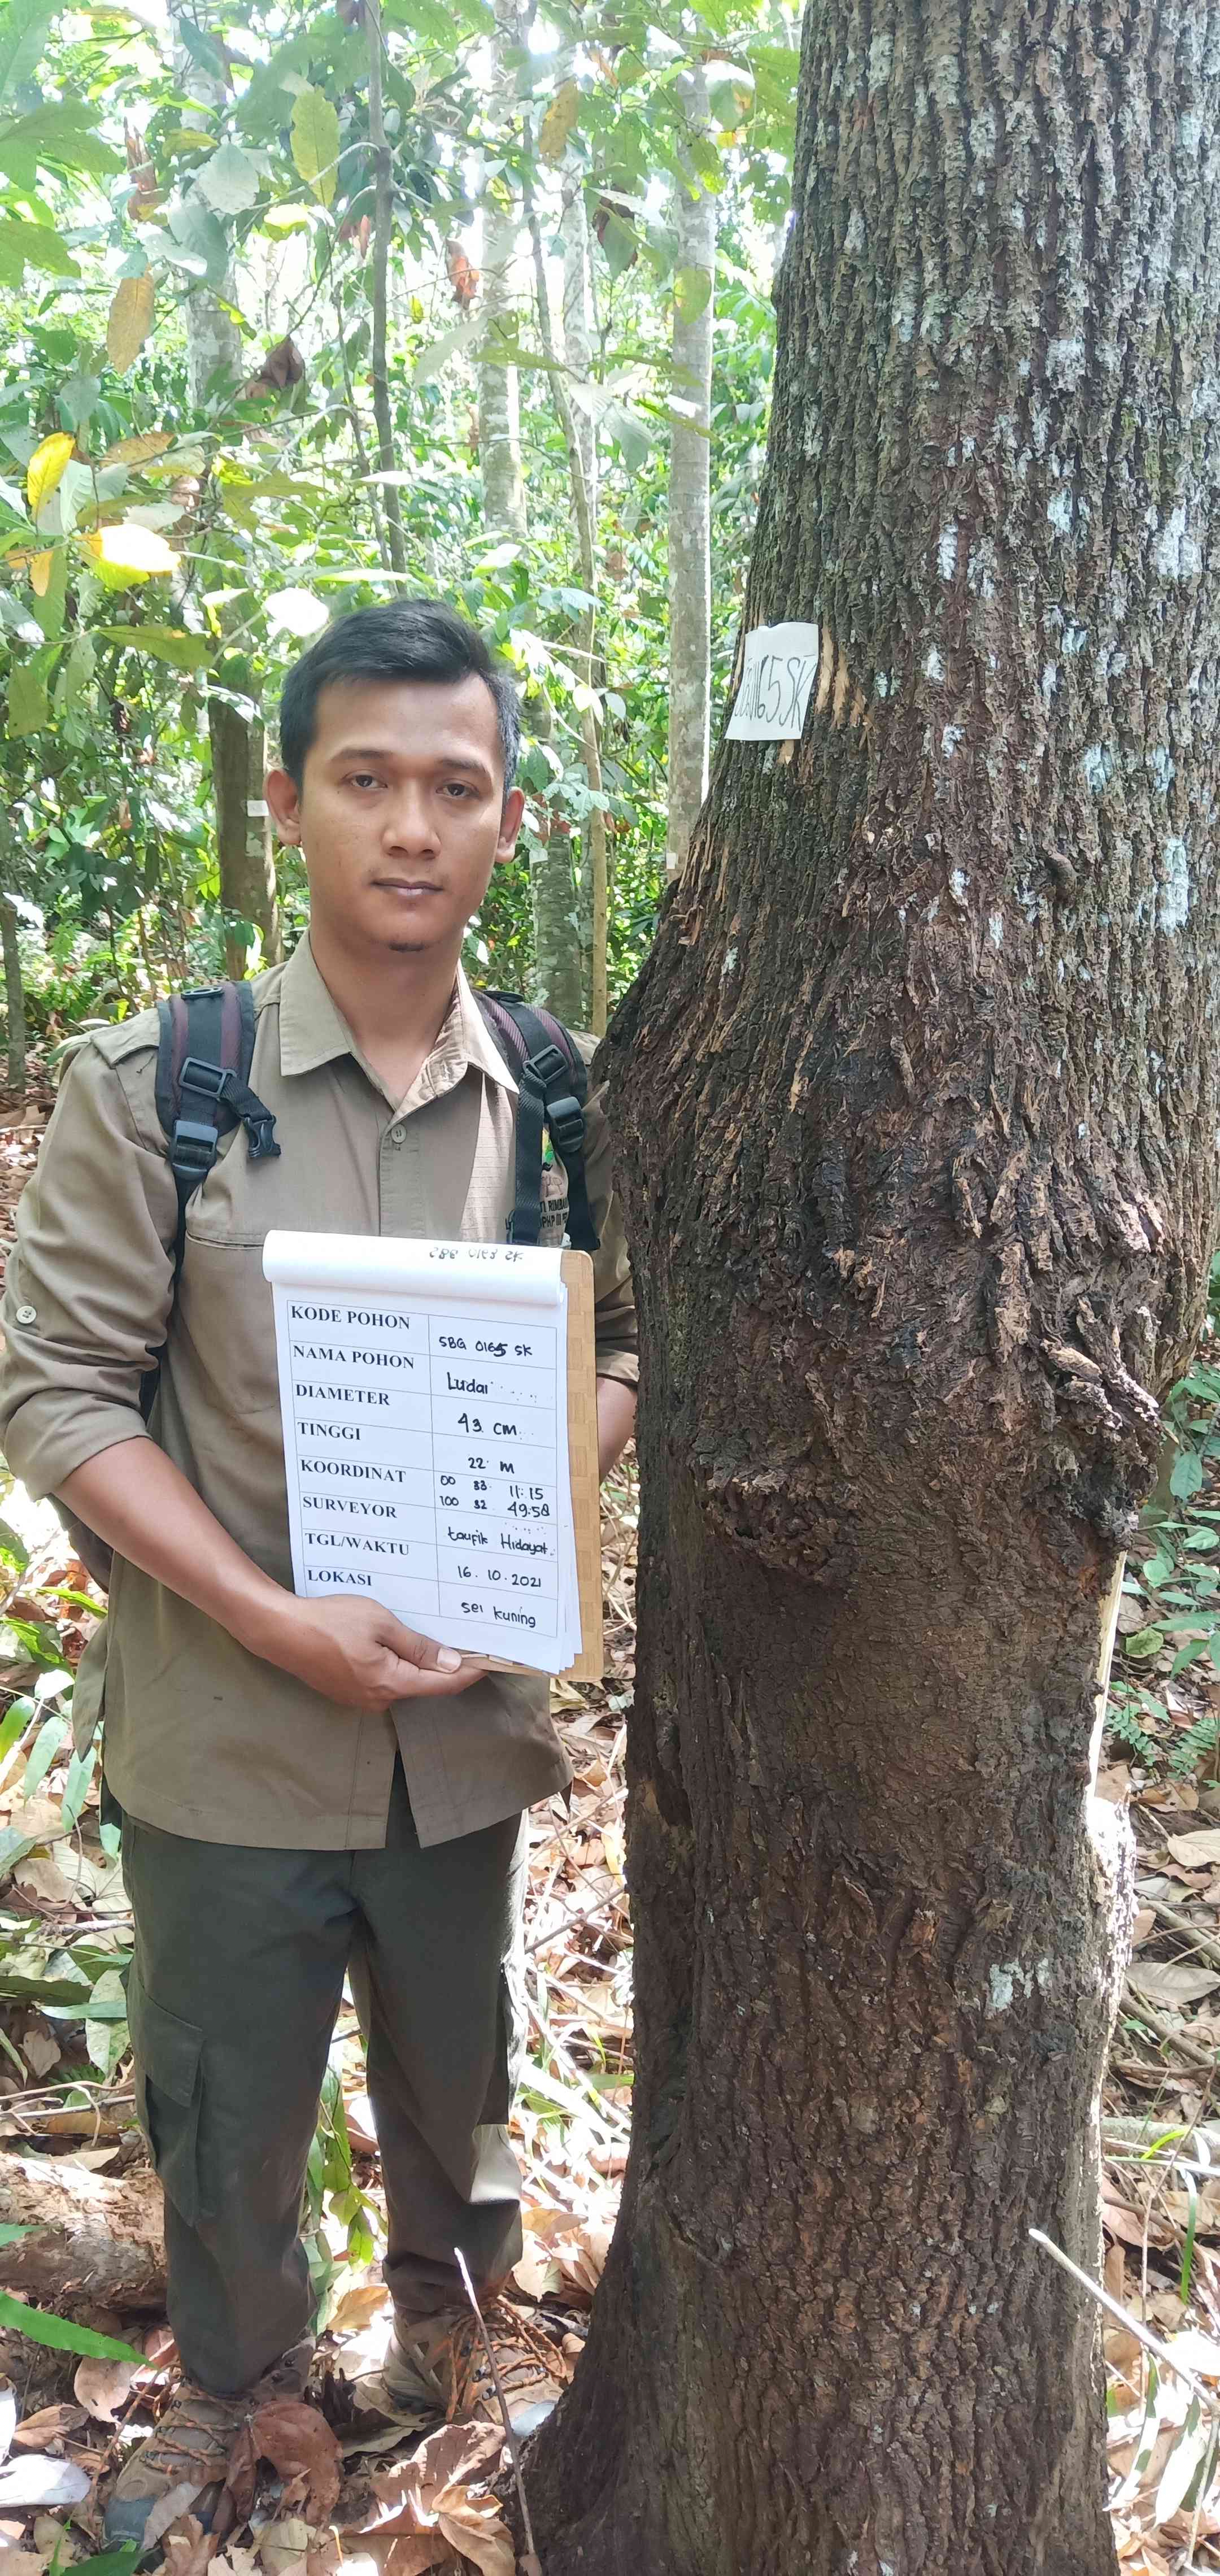 0165SK
KODE POHON SBG 0165 SK
NAMA POHON Ludai
DIAMETER 43 CM
TINGGI 22 M
KOORDINAT 00 33 11.15
100 32 49.58
SURVEYOR taufik Hidayat
TGL/WAKTU 16.10.2021
LOKASI sei kuning